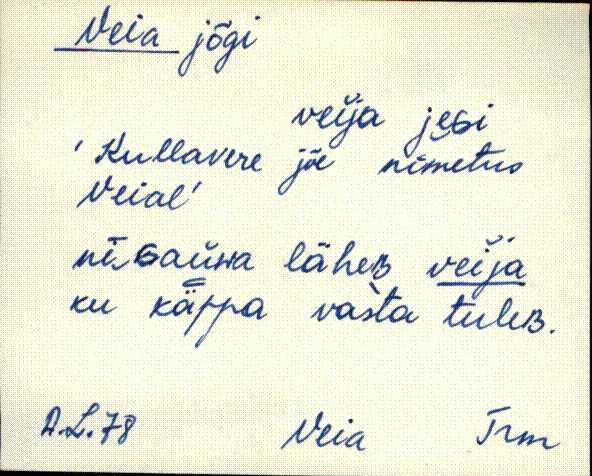 Veia jõgi
veija jeGi
'Kullavere jõe nimetus
Veial'
läheB veija
ku käppa vasta tuleB.
A.L.78 Veia Trm